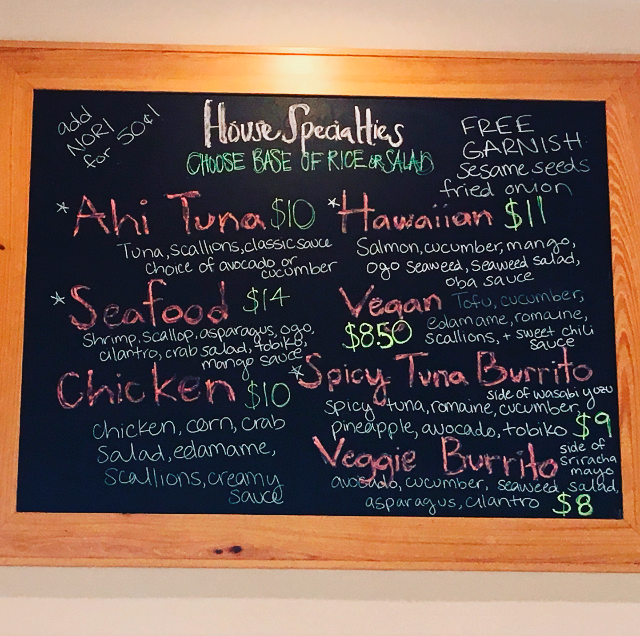 add
NORI
for 50¢!
House Specialties
CHOOSE BASE OF RICE OR SALAD
FREE
GARNISH
sesame seeds
fried onion
*Ahi Tuna $10
Tuna, scallions, classic sauce
choice of avocado or
cucumber
*Hawaiian $11
Salmon, cucumber, mango,
ogo seaweed, seaweed salad,
oba sauce
*Seafood $14
Shrimp, scallop, asparagus, ogo,
cilantro, crab salad, tobiko,
mango sauce
Vegan Tofu, cucumber,
$8.50 edamame, romaine,
scallions, + sweet chili
sauce
Chicken $10
chicken, corn, crab
salad, edamame,
scallions, creamy
sauce
*Spicy Tuna Burrito
side of wasabi yuzu
spicy tuna, romaine, cucumber,
pineapple, avocado, tobiko $9
Veggie Burrito
side of
sriracha
mayo
avocado, cucumber, seaweed salad,
asparagus, cilantro $8